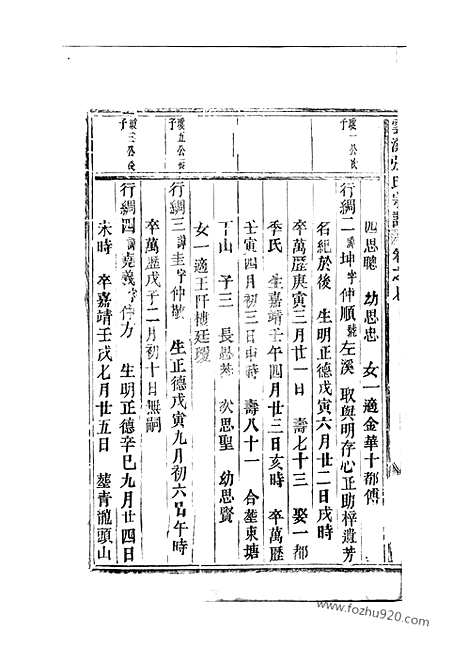 四思聰 幼思忠 女一適金華十都傅
璇一公長子
行綱二諱坤字仲順號左溪 取與明存心正助梓遺芳
名紀於後 生明正德戊寅六月廿二日戌時
卒萬歷庚寅三月廿一日 壽七十三 娶一都
季氏 生嘉靖壬午四月廿三日亥時 卒萬歷
壬寅四月初三日申時 壽八十一 合塟東塘
下山 子三 長 次思聖 幼思賢
女一適王阡樓廷璦
璇五公長子
行綱三諱圭字仲敬 生正德戊寅九月初六日午時
卒萬歷戊子二月初十日無嗣
璇三公長子
行綱四諱堯義字仲方 生明正德辛巳九月廿四日
未時 卒嘉靖壬戌七月廿五日 塟青龍頭山
www.fozhu920.com